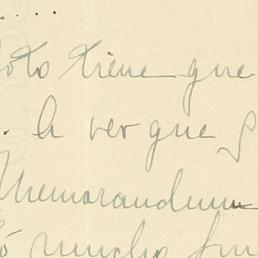 tiene que
. A ver que
Memorandum
mucho